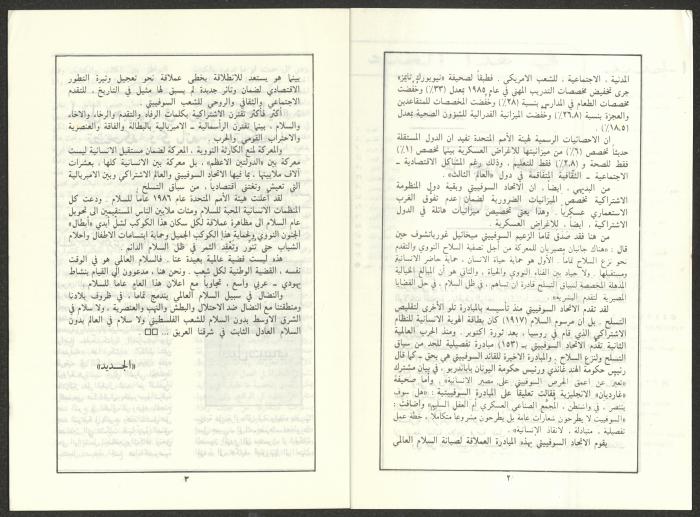 المدنية ، الاجتماعية ، للشعب الامريكي . فطبقاً لصحيفة «نيويورك تايمز»
جرى تخفيض مخصصات التدريب المهني في عام ١٩٨٥ بمعدل (٣٣٪) وخُفّضت
مخصصات الطعام في المدارس بنسبة (٢٨٪) وخُفّضت المخصصات للمتقاعدين
والعجزة بنسبة (٢٦،٨٪) وخُفّضت الميزانية الفدرالية للشؤون الصحية بمعدل
(١٨،٥٪)
ان الاحصائيات الرسمية لهيئة الأمم المتحدة تفيد ان الدول المستقلة
حديثاً تخصص (٦٪) من ميزانيتها للأغراض العسكرية بينما تخصص (١٪)
فقط للصحة و (٢،٨٪) فقط للتعليم ، وذلك رغم المشاكل الاقتصادية ــ
الاجتماعية ــ الثقافية المتفاقمة في دول «العالم الثالث» .
من البديهي ، أيضاً ، ان الاتحاد السوفييتي وبقية دول المنظومة
الاشتراكية تخصص الميزانيات الضرورية لضمان عدم تفوّق الغرب
الاستعماري عسكرياً . وهذا يعني تخصيص ميزانيات هائلة في الدول
الاشتراكية ، أيضاً ، للأغراض العسكرية .
من هنا فقد صدق تماماً الزعيم السوفييتي ميخائيل غورباتشوف حين
قال : «هناك جانبان مصيريان للمعركة من أجل تصفية السلاح النووي والتقدم
نحو نزع السلاح تماماً . الأول هو حماية حياة الانسان ، حماية حاضر الانسانية
ومستقبلها . ولا حياد بين الفناء النووي والحياة ، والثاني هو أن المبالغ الخيالية
المذهلة المخصصة لسباق التسلح قادرة ان تساهم ، في ظل السلام ، في حل القضايا
المصيرية لتقدم البشرية» .
لقد تقدم الاتحاد السوفييتي منذ تأسيسه بالمبادرة تلو الأخرى لتقليص
التسلح . بل ان مرسوم السلام (١٩١٧) كان بطاقة الهوية الانسانية للنظام
الاشتراكي الذي قام في روسيا ، بعد ثورة اكتوبر . ومنذ الحرب العالمية
الثانية تقدّم الاتحاد السوفييتي بـ (١٥٣) مبادرة تفصيلية للحد من سباق
التسلح ولنزع السلاح . والمبادرة الاخيرة للقائد السوفييتي هي بحق ــ كما قال
رئيس حكومة الهند غاندي ورئيس حكومة اليونان باباندريو . في بيان مشترك
«تعبير عن أعمق الحرص السوفييتي على مصير الانسانية» . وأما صحيفة
«غارديان» الانجليزية فقالت تعليقا على المبادرة السوفييتية : «هل سوف
ينتصر ، في واشنطن ، المجمّع الصناعي العسكري أم العقل السليم» وأضافت :
«السوفييت لا يطرحون شعارات عامة بل يطرحون مشروعا متكاملاً ، خطة عمل
تفصيلية ، متبادلة ، لانقاذ الانسانية» .
يقوم الاتحاد السوفييتي بهذه المبادرة العملاقة لصيانة السلام العالمي
٢
بينما هو يستعد للانطلاقة بخطى عملاقة نحو تعجيل وتيرة التطور
الاقتصادي لضمان وتائر جديدة لم يسبق لها مثيل في التاريخ ، للتقدم
الاجتماعي والثقافي والروحي للشعب السوفييتي .
أكثر فأكثر تقترن الاشتراكية بكلمات الرفاه والتقدم والرخاء والاخاء
والسلام ، بينما تقترن الرأسمالية ــ الامبريالية بالبطالة والفاقة والعنصرية
والاحتراب القومي والحرب .
والمعركة لمنع الكارثة النووية ، المعركة لضمان مستقبل الانسانية ليست
معركة بين «الدولتين الأعظم» ، بل معركة بين الانسانية كلها ، بعشرات
آلاف ملايينها ، بما فيها الاتحاد السوفييتي والعالم الاشتراكي وبين الامبريالية
التي تعيش وتغتني اقتصادياً ، من سباق التسلح .
لقد أعلنت هيئة الأمم المتحدة عام ١٩٨٦ عاماً للسلام . ودعت كل
المنظمات الانسانية المحبة للسلام ومئات ملايين الناس المستقيمين الى تحويل
عام السلام الى مظاهرة عملاقة لكل سكان هذا الكوكب لشل أيدي «أبطال»
الجنون النووي ولحماية هذا الكوكب الجميل وحماية ابتسامات الأطفال واحلام
الشباب حتى تنوّر وتعقد الثمر في ظل السلام الدائم .
هذه ليست قضية عالمية بعيدة عنا . فالسلام العالمي هو في الوقت
نفسه ، القضية الوطنية لكل شعب . ونحن هنا ، مدعوون الى القيام بنشاط
يهودي ــ عربي واسع ، تجاوباً مع اعلان هذا العام عاماً للسلام .
والنضال في سبيل السلام العالمي يندمج تماما ، في ظروف بلادنا
ومنطقتنا مع النضال ضد الاحتلال والبطش والنهب والعنصرية ، ولا سلام في
الشرق الأوسط بدون السلام للشعب الفلسطيني ولا سلام في العالم بدون
السلام العادل الثابت في شرقنا العريق ... □□
«الجديد»
٣